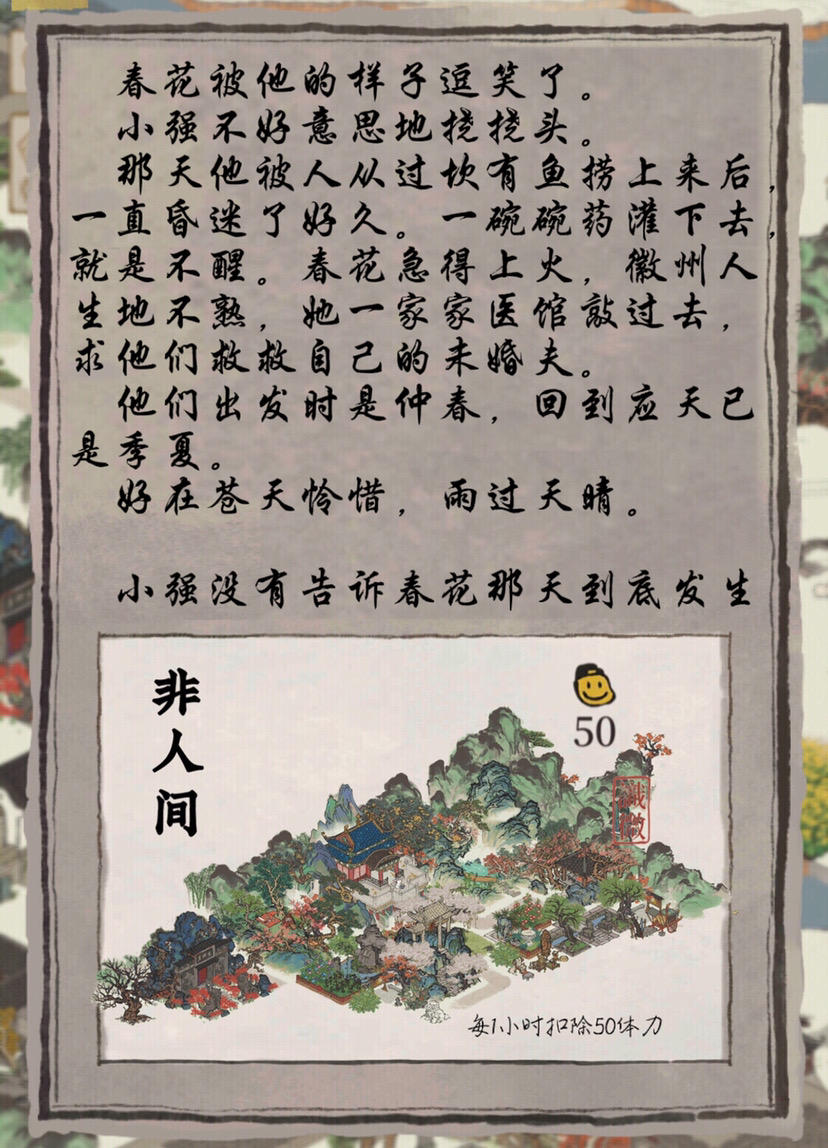 春花被他的样子逗笑了。
小强不好意思地挠挠头。
那天他被人从过坎有鱼捞上来后，
一直昏迷了好久。一碗碗药灌下去，
就是不醒。春花急得上火，徽州人
生地不熟，她一家家医馆敲过去，
求他们救救自己的未婚夫。
他们出发时是仲春，回到应天已
是季夏。
好在苍天怜惜，雨过天晴。
小强没有告诉春花那天到底发生
非人间
50
每1小时扣除50体力